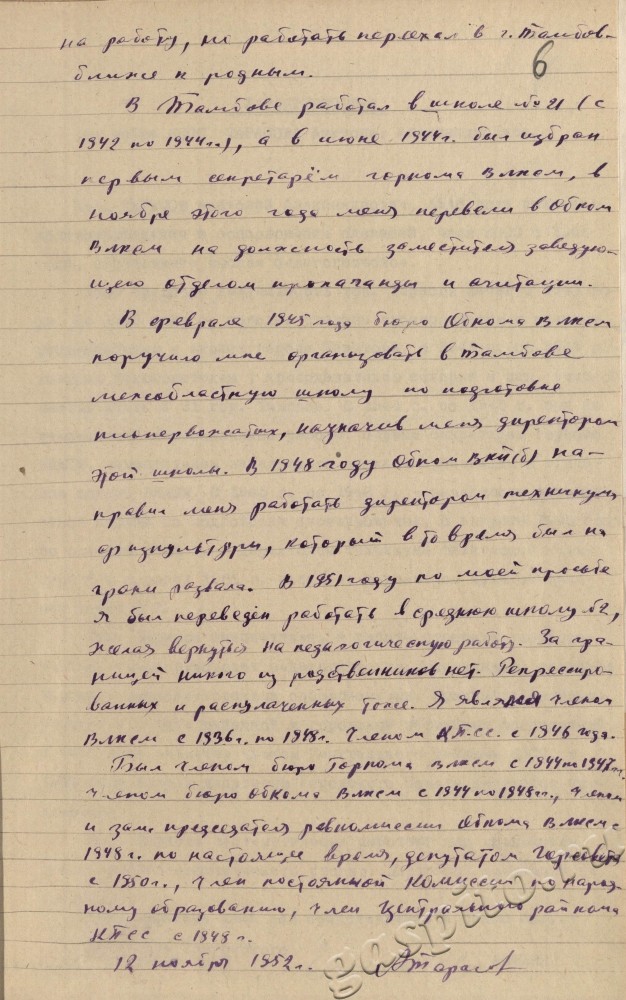 на работу, но работать переехал в г. Тамбов-
ближе к родным.
6
В Тамбове работал в школе № 21 (с
1942 по 1944г.), а в июне 1944г. был избран
первым секретарём горкома ВЛКСМ, в
ноябре этого года меня перевели в Обком
ВЛКСМ на должность заместителя заведую-
щего отделом пропаганды и агитации.
В феврале 1945 года бюро Обкома ВЛКСМ
поручило мне организовать в Тамбове
межобластную школу по подготовке
пионервожатых, назначив меня директором
этой школы. В 1948 году Обком ВКП(б) на-
правил меня работать директором техникума
физкультуры, который в то время был на
грани развала. В 1951 году по моей просьбе
я был переведен работать в среднюю школу №2,
желая вернуться на педагогическую работу. За гра-
ницей никого из родственников нет. Репрессиро-
ванных и раскулаченных тоже. Я являлся членом
ВЛКСМ с 1936г. по 1948г. Членом КПСС с 1946 года.
Был членом бюро Горкома ВЛКСМ с 1944 по 1947гг.
Членом бюро обкома ВЛКСМ с 1944 по 1948гг., Членом
и зам. председателя ревкомиссии Обкома ВЛКСМ с
1948г. по настоящее время, депутатом Горсовета
с 1950г., член постоянной комиссии по народ-
ному образованию, член Центрального райкома
КПСС с 1948г.
12 ноября 1952г. Тарасов